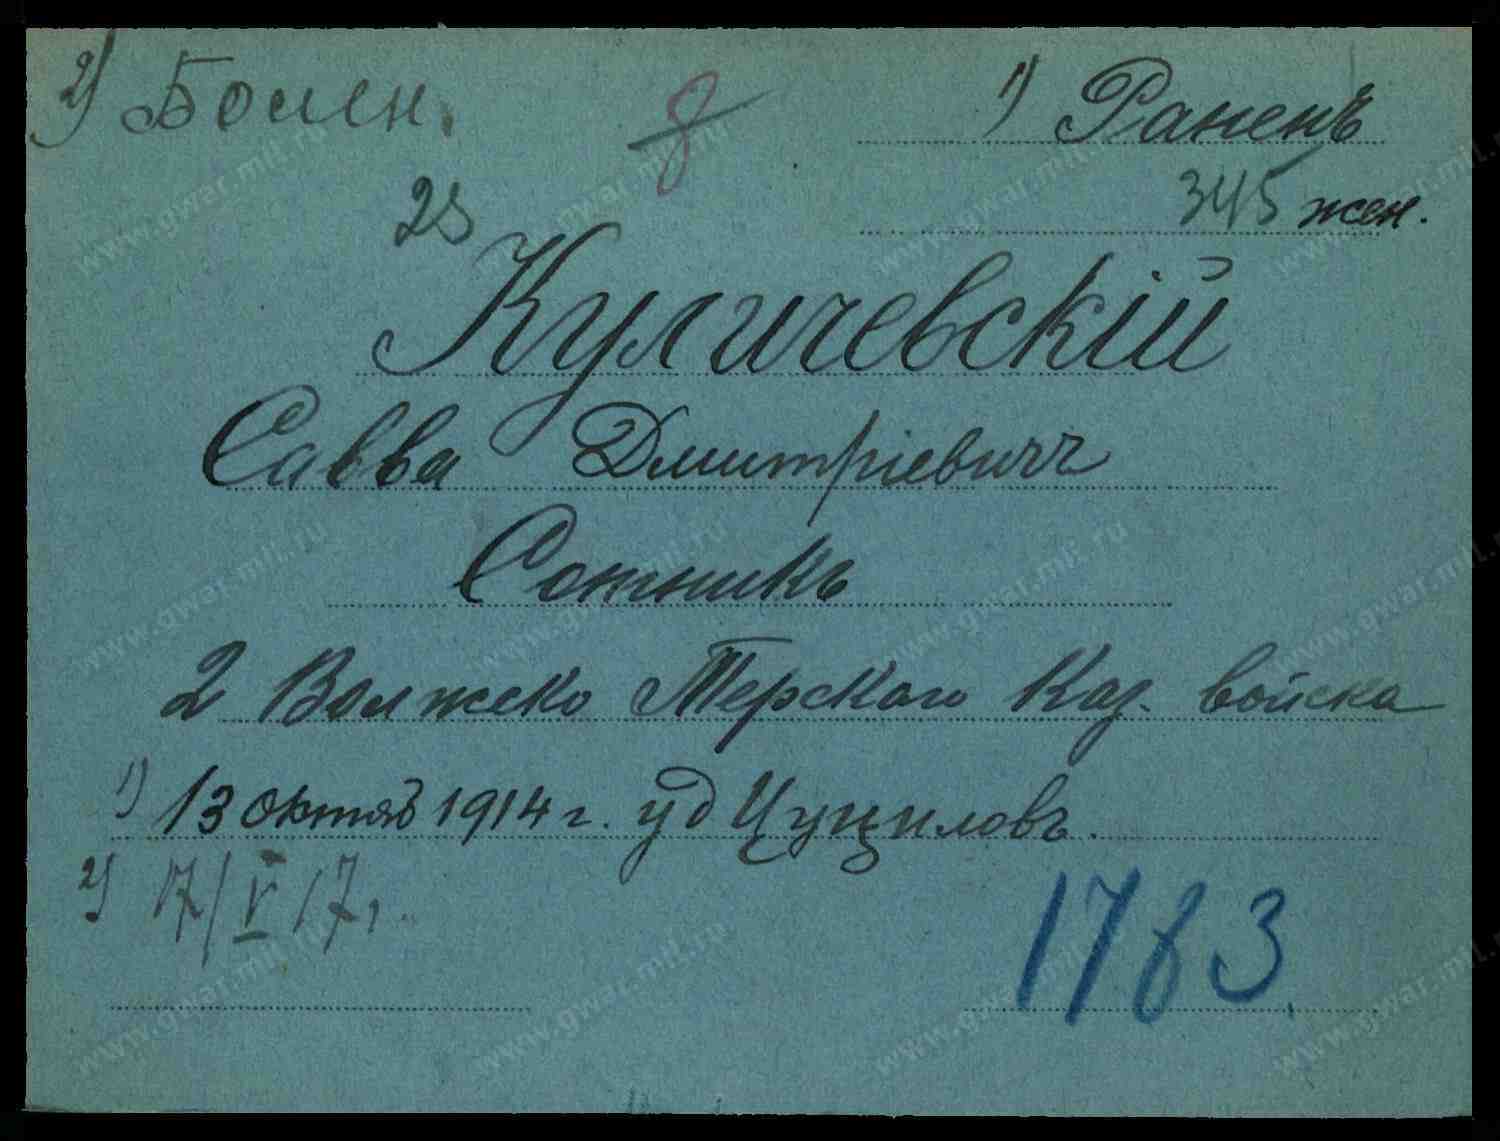 2) Болен.
8
1) Раненъ
25
345 жен.
Куличевскій
Савва Дмитріевичъ
Сотникъ
2 Волжско Терскаго Каз. войска
1) 13 октяб 1914 г. у д Цуциловъ.
2) 17/V 17 г.
1783
www.gwar.mil.ru